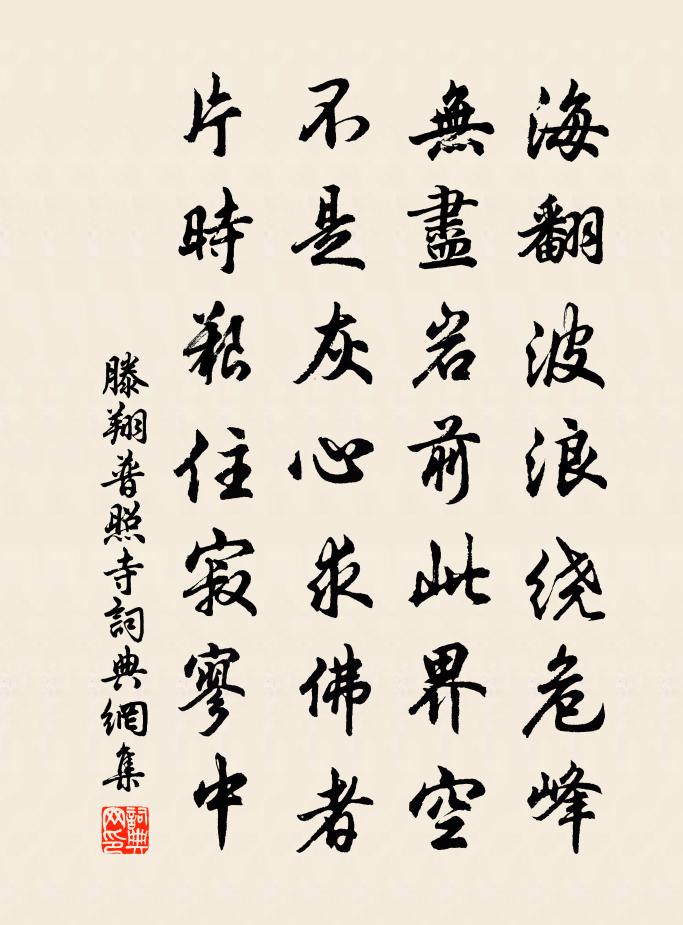 海翻波浪绕危峰
無盡岩前此界空
不是灰心求佛者
片時艱住寂寥中
滕翔普照寺詞典網集
詞典网印